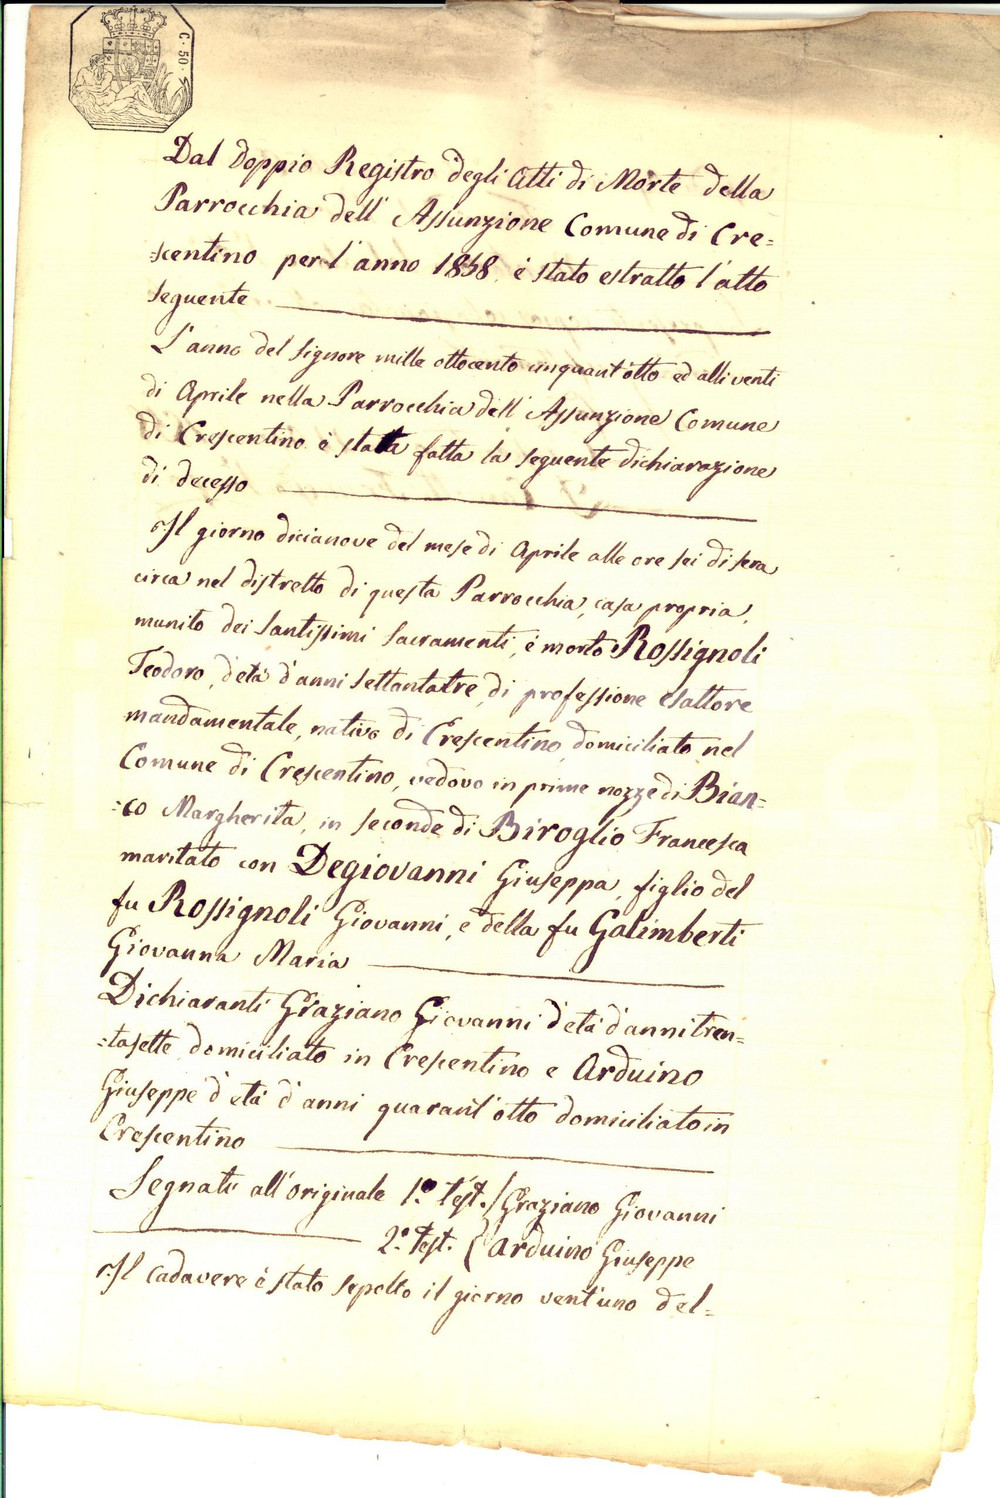 C. 50.
Dal Doppio Registro degli Atti di Morte della
Parrocchia dell' Assunzione Comune di Cre=
=scentino per l'anno 1858. è stato estratto l'atto
seguente
L'anno del Signore mille ottocento cinquant'otto ed alli venti
di Aprile nella Parrocchia dell' Assunzione Comune
di Crescentino è stata fatta la seguente dichiarazione
di decesso
Il giorno dicianove del mese di Aprile alle ore sei di sera
circa nel distretto di questa Parrocchia, casa propria,
munito dei Santissimi Sacramenti, è morto Rossignoli
Teodoro, d'età d'anni settantatre, di professione esattore
mandamentale, nativo di Crescentino, domiciliato nel
Comune di Crescentino, vedovo in prime nozze di Bian=
=co Margherita, in seconde di Biroglio Francesca
maritato con Degiovanni Giuseppa, figlio del
fu Rossignoli Giovanni, e della fu Galimberti
Giovanna Maria
Dichiaranti Graziano Giovanni d'età d'anni tren=
=tasette domiciliato in Crescentino e Arduino
Giuseppe d'età d'anni quarant'otto domiciliato in
Crescentino
Segnati all'originale 1.° Test. / Graziano Giovanni
2.° Test. { Arduino Giuseppe
Il cadavere è stato sepolto il giorno vent'uno del=